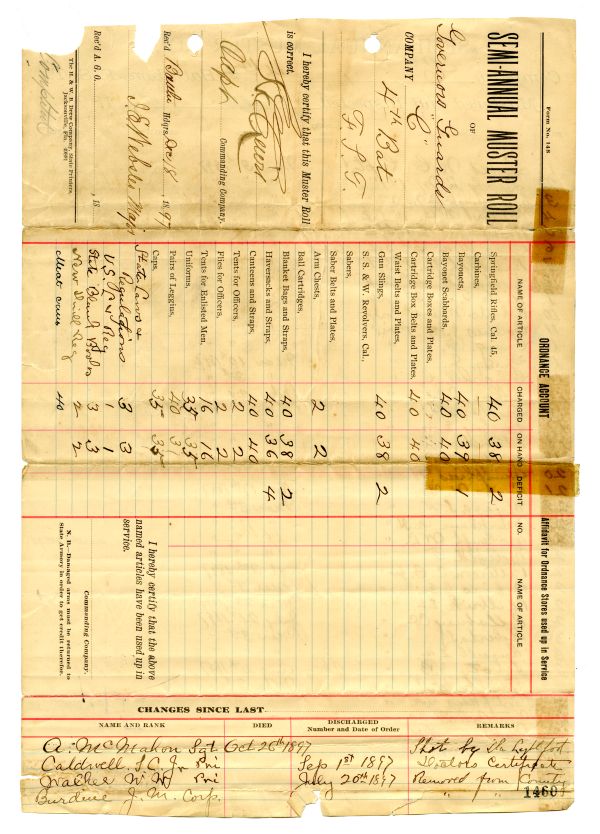 Form No. 148
SEMI-ANNUAL MUSTER ROLL
OF
Governors Guards
"C"
COMPANY
4th Bat
F. S. T.
I hereby certify that this Muster Roll
is correct.
Capt
Commanding Company.
Rec'd Hdqrs. Dec 18, 1897
J. E. Webster Major
Rec'd A. G. O. , 18
The H. & W. B. Drew Company, State Printers,
Jacksonville, Fla.
ORDNANCE ACCOUNT
NAME OF ARTICLE CHARGED ON HAND DEFICIT
Springfield Rifles, Cal 45, 40 38 2
Carbines,
Bayonets, 40 39 1
Bayonet Scabbards, 40 40
Cartridge Boxes and Plates,
Cartridge Box Belts and Plates, 40 40
Waist Belts and Plates,
Gun Slings, 40 38 2
S. & W. Revolvers, Cal.,
Sabers,
Saber Belts and Plates,
Arm Chests, 2 2
Ball Cartridges,
Blanket Bags and Straps, 40 38 2
Haversacks and Straps, 40 36 4
Canteens and Straps, 40 40
Tents for Officers, 2 2
Flies for Officers, 2 2
Tents for Enlisted Men, 16 16
Uniforms, 35 35
Pairs of Leggins, 40
Caps, 35 35
State Laws &
Regulations 3 3
U.S. Reg 1 1
State Blank Books 3 3
New Drill Reg 2 2
Meat cans 40
Affidavit for Ordnance Stores used up in Service
NO. NAME OF ARTICLE
I hereby certify that the above
named articles have been used up in
service.
Commanding Company.
N. B.—Damaged arms must be returned to
State Armory in order to get credit therefor.
CHANGES SINCE LAST
NAME AND RANK DIED DISCHARGED Number and Date of Order REMARKS
A. McMahon Sgt Oct 26th 1897 Shot by
Caldwell, S.C. Jr Pri Sep 1st 1897 Certificate
Walker W. W. Pri July 20th 1897 Removed from County
Burdine J. M. Corp. " "
1460